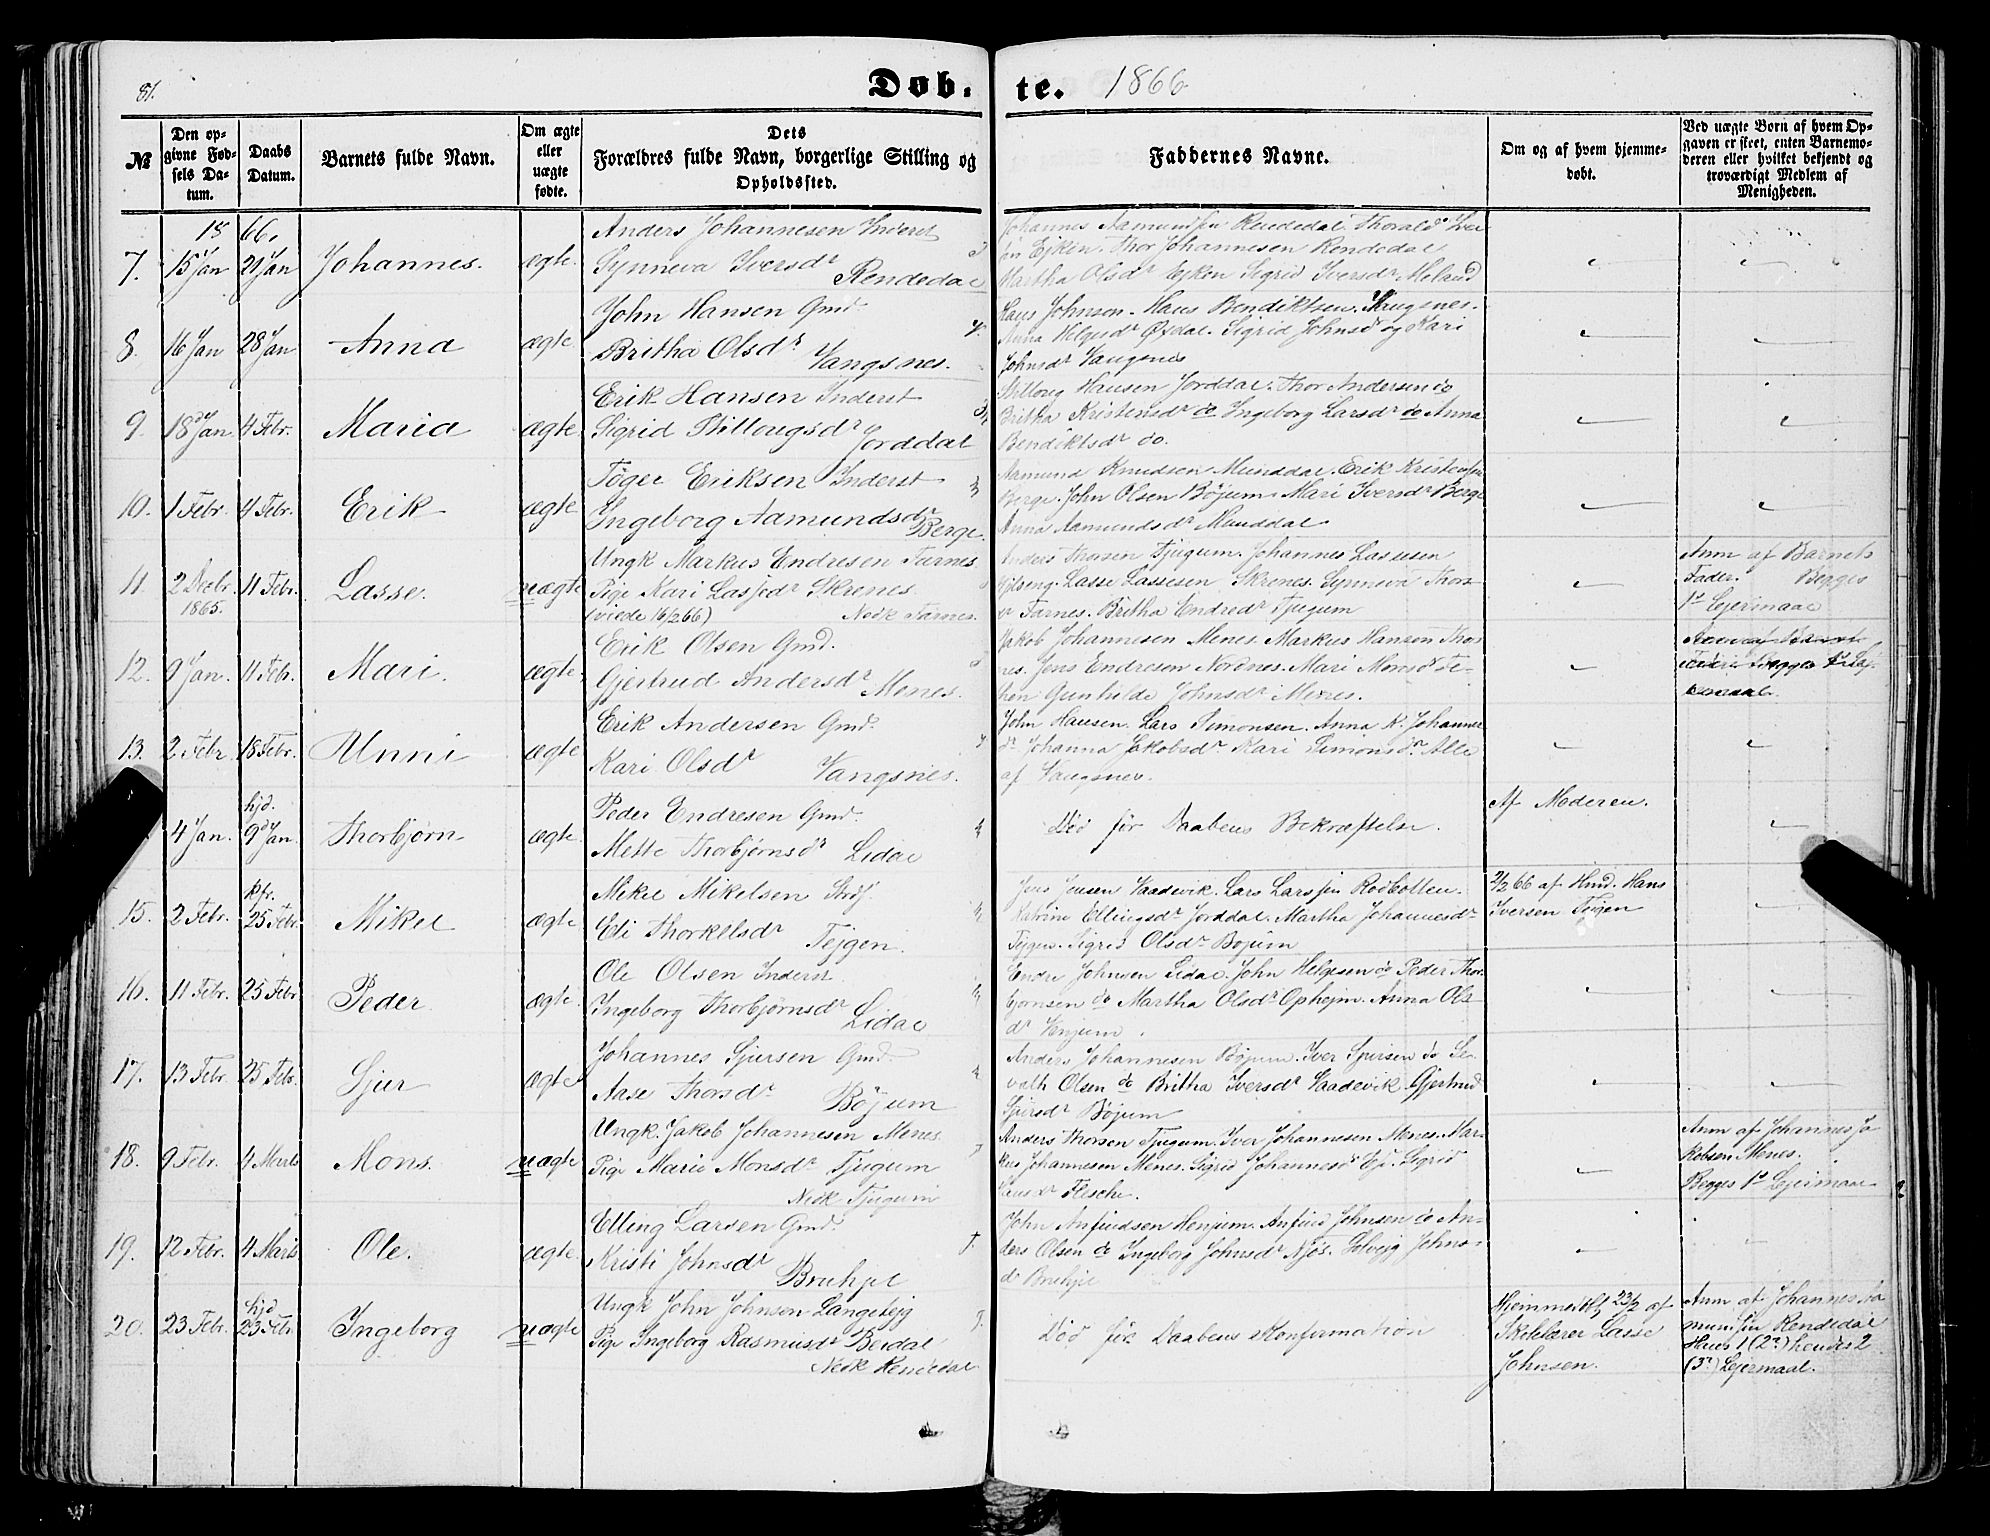 81.
Døb.
te. 1866
№
Den op-
givne Fød-
sels Da-
tum.
Daabs
Datum.
Barnets fulde Navn.
Om ægte
eller
uægte
fødte.
Dets
Forældres fulde Navn, borgerlige Stilling og
Opholdssted.
Faddernes Navne.
Om og af hvem hjemme-
døbt.
Ved uægte Børn af hvem Op-
gaven er skeet, enten Barnemo-
deren eller hvilket bekjendt og
troværdigt Medlem af
Menigheden.
18 66.
7. 15 Jan 21 Jan Johannes. ægte.
Anders Johannesen Inderst
Synneva Iversdr
Rendedal
Johannes Aamundsen Rendedal Thorald
Ejken. Thor Johannesen Rendedal
Martha Olsdr Ejken Sigrid Iversdr Meland
8. 16 Jan 28 Jan Anna ægte
John Hansen Gmd.
Britha Olsdr Vangsnes.
Hans Johnsen. Hans Bendiktsen. Vangsnes.
Anna Helgesdr Øvdal. Sigrid Johnsd og Kari
Johnsdr Vangsnes
9. 18 Jan. 4 Febr. Maria ægte
Erik Hansen Inderst
Sigrid Stillougsdr Jorddal
Stilloug Hansen Jorddal. Thor Andersen do
Britha Kristensdr do Ingeborg Larsdr do Anna
Bendiktsdr do.
10. 1 Febr. 4 Febr. Erik ægte
Tøger Eriksen Inderst
Ingeborg Aamundsdr
Berge.
Aamund Knudsen Munddal. Erik Kristensen
Berge. John Olsen Bøjum. Mari Iversdr Berge
Anna Aamundsdr Munddal
11. 2 Decbr. 11 Febr. Lasse. uægte
1865.
Ungk Markus Endresen Farnes
Pige Kari Lassedr Skrenes
(viede 16/2 66) Nedk Farnes.
Anders Thorsen Tjugum. Johannes Lassesen
Lasse Lassesen Skrenes. Synneva Thors
dr Farnes. Britha Endredr Tjugum
Anm af Barnets
Fader. Begges
1ste Lejermaal
12. 9 Jan. 11 Febr. Mari. ægte.
Erik Olsen Gmd.
Gjertrud Andersdr Menes.
Jakob Johannesen Menes. Markus Hansen
nes. Jens Endresen Nordnes. Mari Monsdr
Gunhilde Johnsdr Menes.
13. 2 Febr 18 Febr. Unni ægte
Erik Andersen Gmd.
Kari Olsdr Vangsnes.
John Hansen. Lars Simonsen. Anna K. Johannes
dr Johanna Jakobsdr. Kari Simonsdr. Alle
af Vangsnes.
hjd.
4 Jan. 9d Jan. Thorbjørn ægte.
Peder Endresen Gmd.
Mette Thorbjørnsdr Lidal
Død før Daabens Bekræftelse.
Af Moderen.
15. 2 Febr. 25 Febr. Mikel ægte.
Mikel Mikelsen
Eli Thorkelsdr Tejgen.
Jens Jensen Vaadevik. Lars Larssen Rødbotten.
Katrine Ellingsdr Jorddal. Martha Johannesdr
Tejgen. Sigrid Olsdr Bøjum
2/2 66 af Hmd. Hans
Iversen Tejgen
16. 11 Febr. 25 Febr. Peder ægte.
Ole Olsen Inderst
Ingeborg Thorbjørnsdr Lidal
Endre Johnsen Lidal. John Helgesen do Peder Thor-
bjørnsen do Martha Olsdr Ophejm. Anna Ols
dr Venjum.
17. 13 Febr. 25 Febr. Sjur ægte
Johannes Sjursen Gmd
Aase Thorsdr Bøjum
Anders Johannesen Bøjum. Iver Sjursen do
Olsen do Britha Iversdr Vaadevik. Gjertrud
Sjursdr Bøjum
18. 9 Febr. 4 Marts Mons. uægte
Ungk. Jakob Johannesen Menes
Pige Marie Monsdr Tjugum
Nedk Tjugum
Anders Thorsen Tjugum. Iver Johannesen Menes. Mar-
kus Johannesen Menes. Sigrid Johannesdr Sigrid
Flesche.
Anm af Johannes Ja
kobsen Menes.
Begges 1ste Lejermaal
19. 12 Febr. 4 Marts Ole. ægte.
Elling Larsen Gmd.
Kristi Johnsdr Bruhjel
John Anfindsen Henjum. Anfind Johnsen do An-
ders Olsen do Ingeborg Johnsdr Njøs. Solvejg Johns-
dr Bruhjel
hjd
20. 23 Febr. 23 Febr. Ingeborg uægte
Ungk John Johnsen Langetejg
Pige Ingeborg Rasmusdr
Nedk Rendedal
Død før Daabens Konfirmation
Hjemmedøbt 23/2 af
Skolelærer Lasse
Johnsen.
Anm af Johannes Aa
mundsen Rendedal
Hans 1 (2?) hendes 2
(3?) Lejermaal.